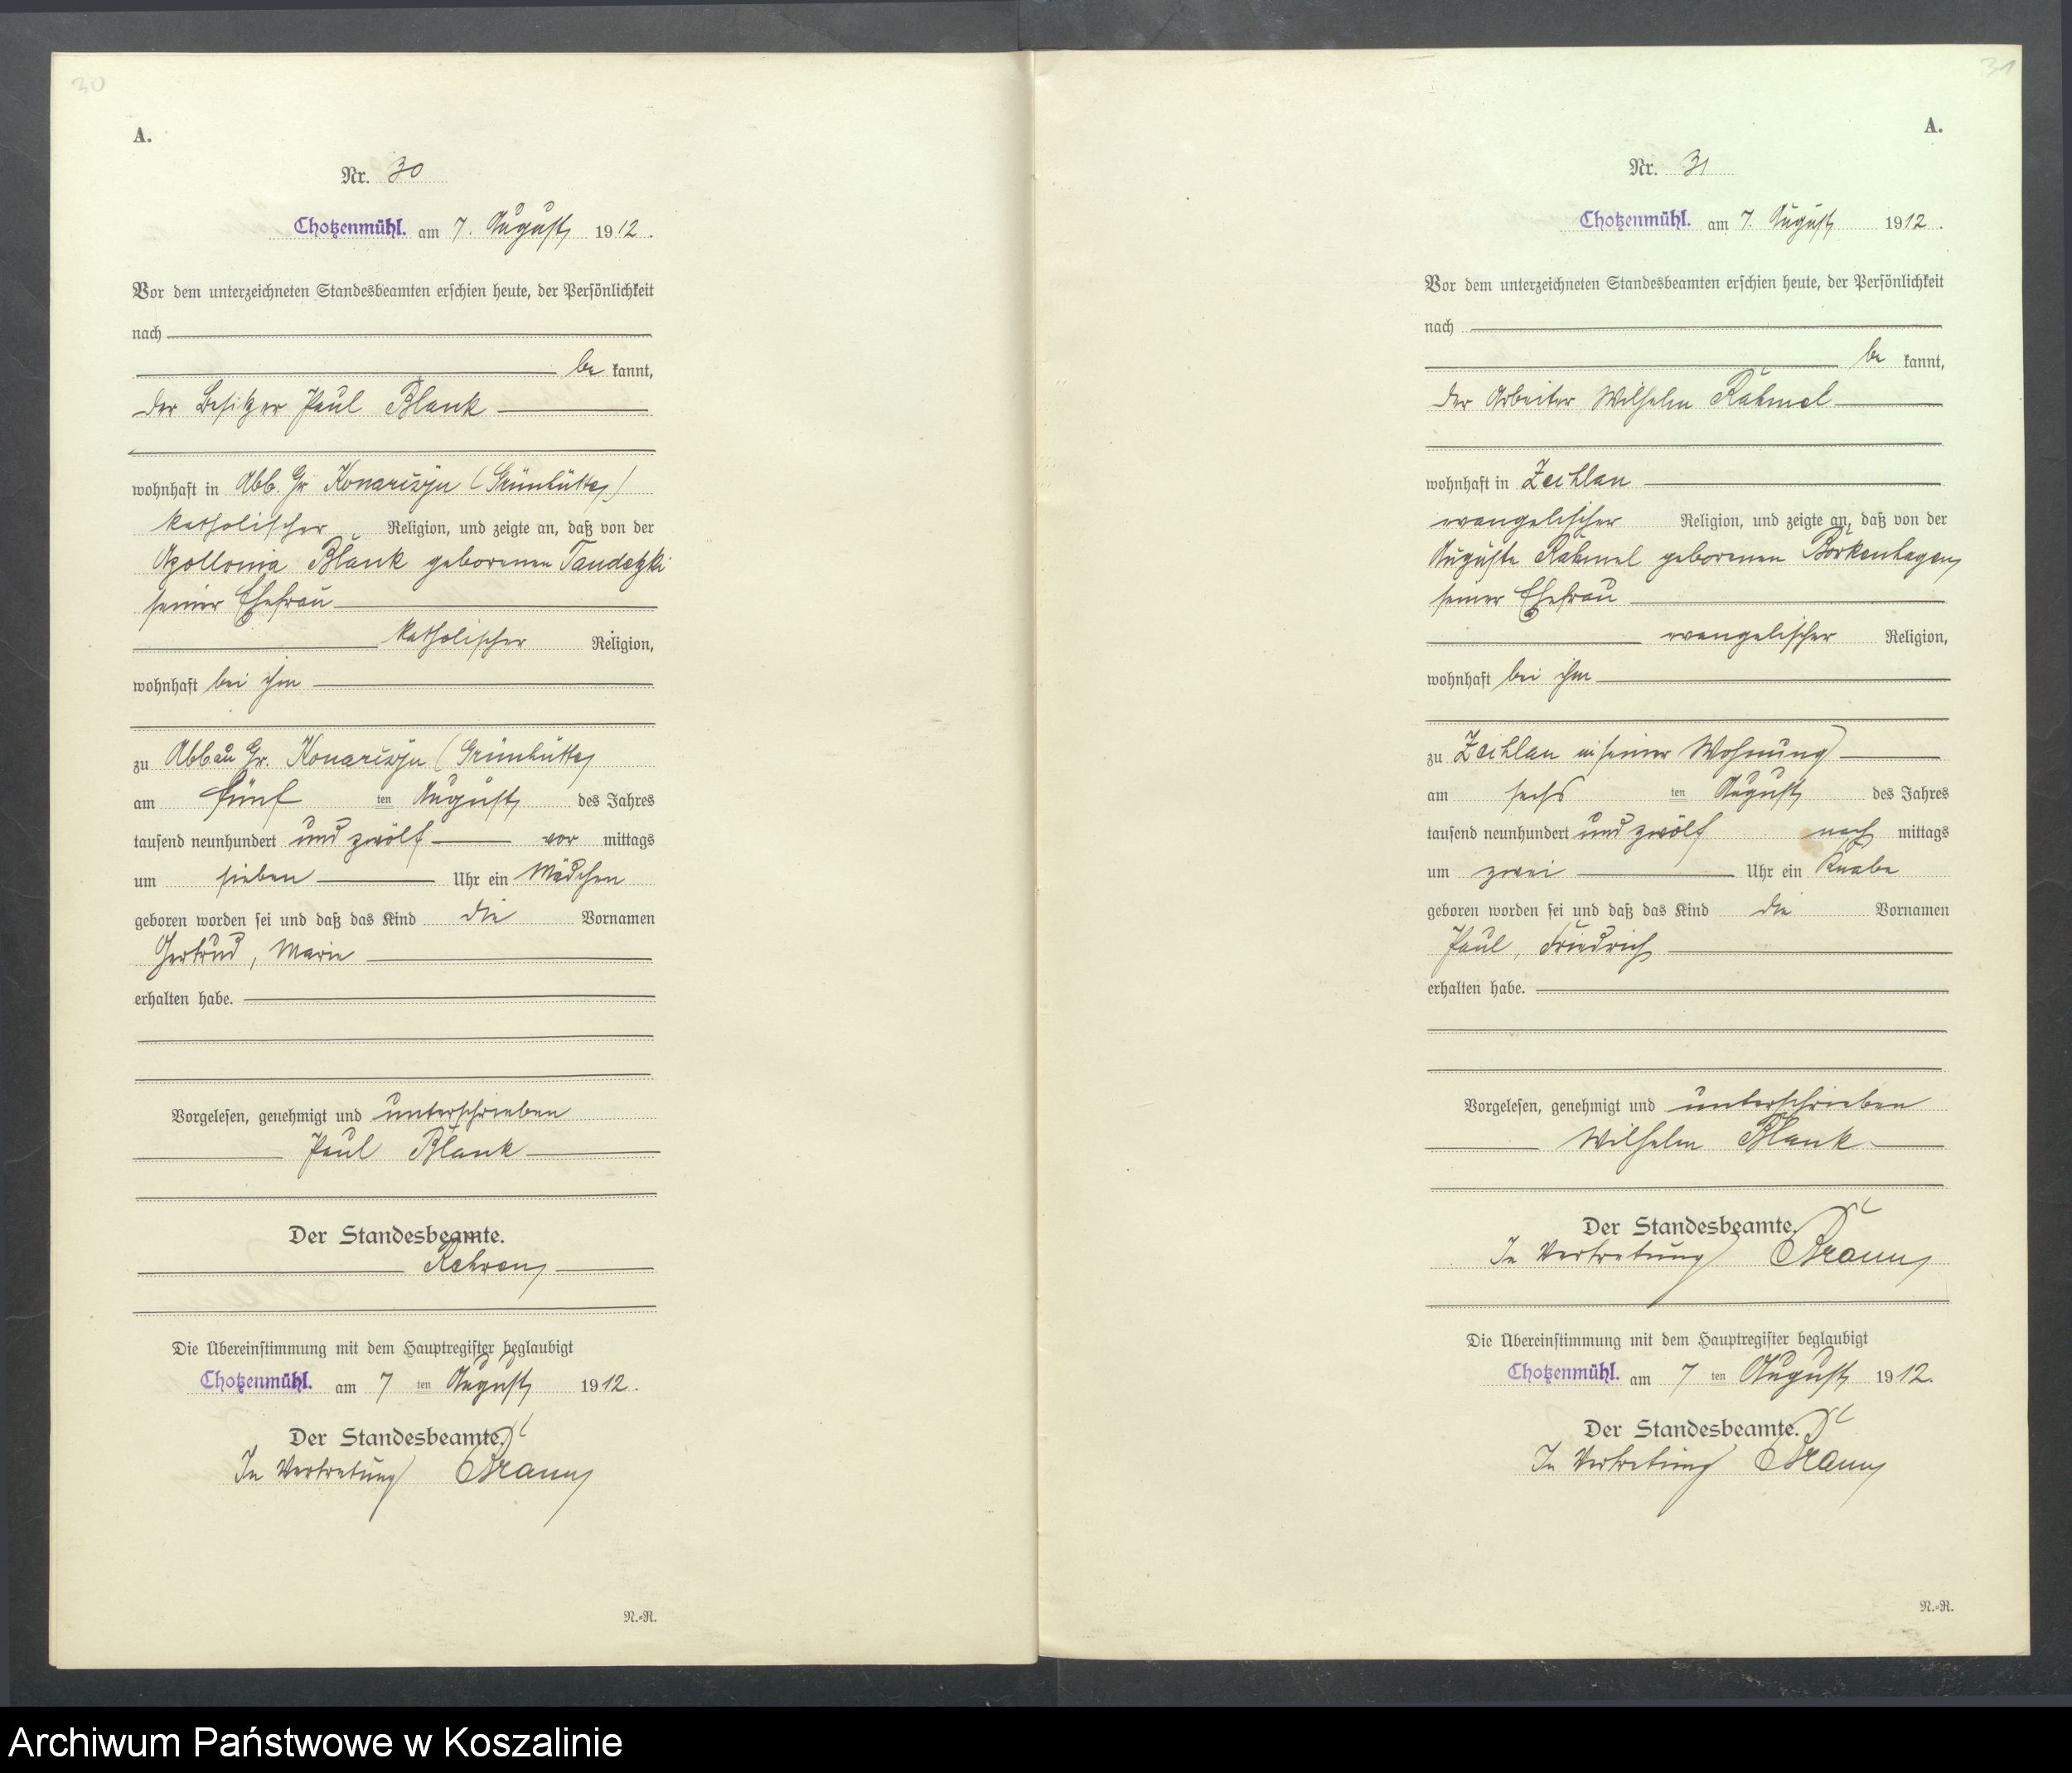 30
A.
Nr. 30
Chotzenmühl. am 7. August 1912.
Vor dem unterzeichneten Standesbeamten erschien heute, der Persönlichkeit
nach
be kannt,
der Besitzer Paul Blank
wohnhaft in Abb. Gr Konarczyn (Grünhütte)
katholischer Religion, und zeigte an, daß von der
Apollonia Blank geborenen Tandetzki
seiner Ehefrau
katholischer Religion,
wohnhaft bei ihm
zu Abbau Gr. Konarczyn (Grünhütte)
am fünf ten August des Jahres
tausend neunhundert und zwölf vor mittags
um sieben Uhr ein Mädchen
geboren worden sei und daß das Kind die Vornamen
Gertrud, Marie
erhalten habe.
Vorgelesen, genehmigt und unterschrieben
Paul Blank
Der Standesbeamte.
Die Übereinstimmung mit dem Hauptregister beglaubigt
Chotzenmühl. am 7 ten August 1912.
Der Standesbeamte.
In Vertretung Braun
N.-R.
31
A.
Nr. 31
Chotzenmühl. am 7. August 1912.
Vor dem unterzeichneten Standesbeamten erschien heute, der Persönlichkeit
nach
be kannt,
der Arbeiter Wilhelm Rahmel
wohnhaft in Zechlau
evangelischer Religion, und zeigte an, daß von der
Auguste Rahmel geborenen Borkenhagen
seiner Ehefrau
evangelischer Religion,
wohnhaft bei ihm
zu Zechlau in seiner Wohnung
am sechs ten August des Jahres
tausend neunhundert und zwölf nach mittags
um zwei Uhr ein Knabe
geboren worden sei und daß das Kind die Vornamen
Paul, Friedrich
erhalten habe.
Vorgelesen, genehmigt und unterschrieben
Wilhelm Blank
Der Standesbeamte.
In Vertretung Braun
Die Übereinstimmung mit dem Hauptregister beglaubigt
Chotzenmühl. am 7 ten August 1912.
Der Standesbeamte.
In Vertretung Braun
N.-R.
Archiwum Państwowe w Koszalinie